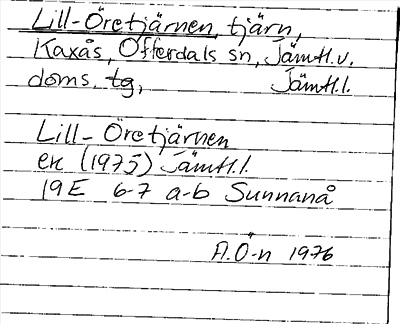 Lill-Öretjärnen, tjärn,
Kaxås, Offerdals sn, Jämtl.v.
doms. tg, Jämtl.l.
Lill-Öretjärnen
ek (1975) Jämtl.l.
19E 6-7 a-b Sunnanå
A.Ö-n 1976